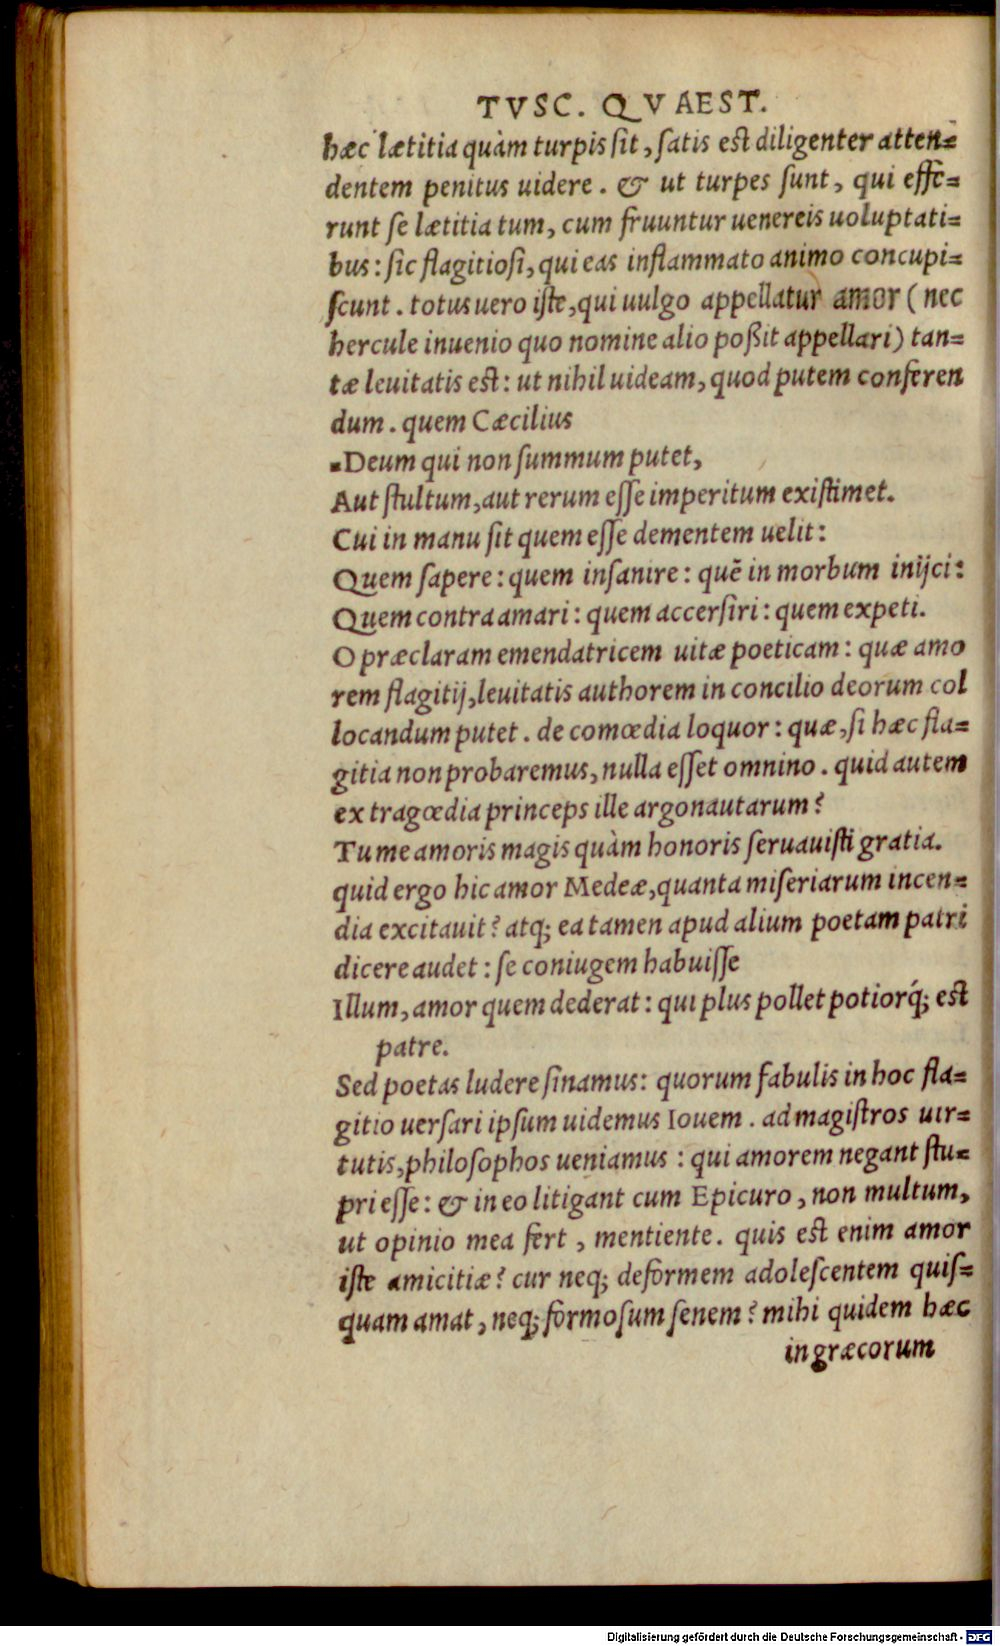 TVSC. QVAEST.
hæc lætitia quàm turpis sit, satis est diligenter atten=
dentem penitus uidere. & ut turpes sunt, qui effe=
runt se lætitia tum, cum fruuntur uenereis uoluptati=
bus: sic flagitiosi, qui eas inflammato animo concupi=
scunt. totus uero iste, qui uulgo appellatur amor (nec
hercule inuenio quo nomine alio poßit appellari) tan=
tæ leuitatis est: ut nihil uideam, quod putem conferen
dum. quem Cæcilius
Deum qui non summum putet,
Aut stultum, aut rerum esse imperitum existimet.
Cui in manu sit quem esse dementem uelit:
Quem sapere: quem insanire: quē in morbum inijci:
Quem contra amari: quem accersiri: quem expeti.
O præclaram emendatricem uitæ poeticam: quæ amo
rem flagitij, leuitatis authorem in concilio deorum col
locandum putet. de comœdia loquor: quæ, si hæc fla=
gitia non probaremus, nulla esset omnino. quid autem
ex tragœdia princeps ille argonautarum?
Tu me amoris magis quàm honoris seruauisti gratia.
quid ergo hic amor Medeæ, quanta miseriarum incen=
dia excitauit? atq; ea tamen apud alium poetam patri
dicere audet: se coniugem habuisse
Illum, amor quem dederat: qui plus pollet potiorq́; est
patre.
Sed poetas ludere sinamus: quorum fabulis in hoc fla=
gitio uersari ipsum uidemus Iouem. ad magistros uir=
tutis, philosophos ueniamus: qui amorem negant stu=
pri esse: & in eo litigant cum Epicuro, non multum,
ut opinio mea fert, mentiente. quis est enim amor
iste amicitiæ? cur neq; deformem adolescentem quis=
quam amat, neq; formosum senem? mihi quidem hæc
in græcorum
Digitalisierung gefördert durch die Deutsche Forschungsgemeinschaft - DFG